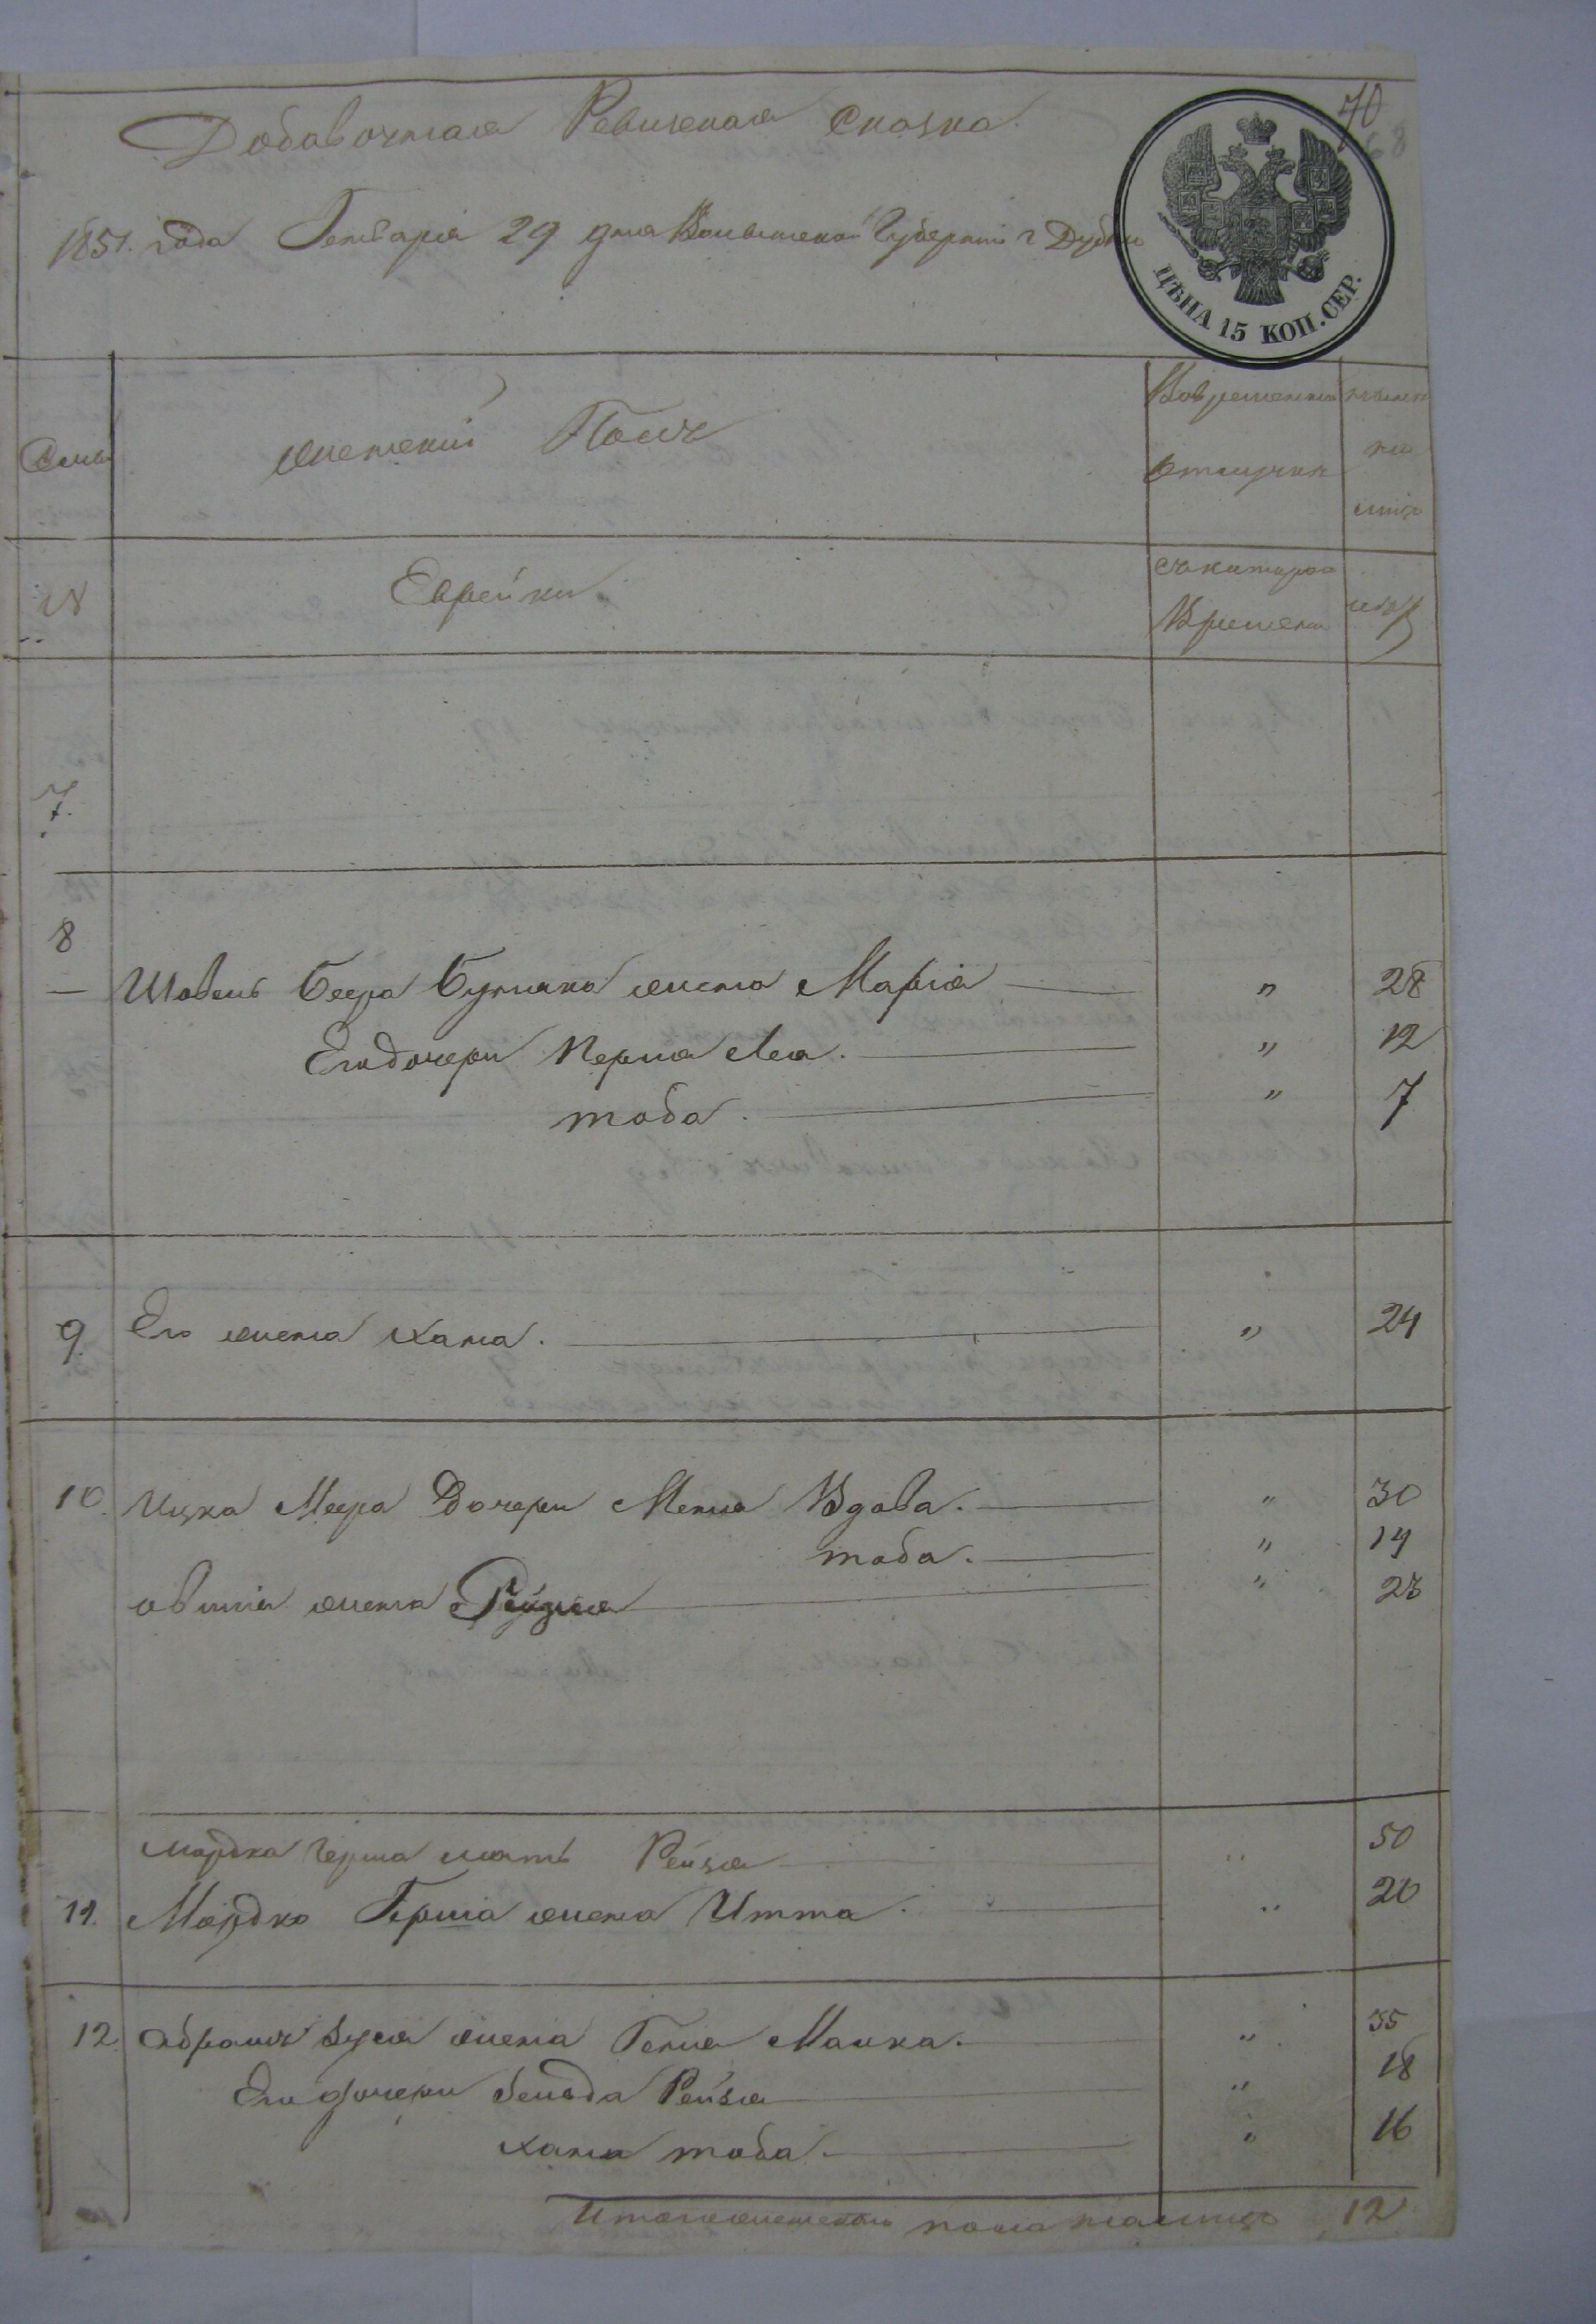 70
68
Добавочная Ревизская Сказка
1851. года Генваря 29 дня Волынской Губернии г Дубно
ЦѢНА 15 КОП. СЕР.
Семьи
женский Полъ
Вовременной
отлучки
на
лицо
№
Еврейки
съкотораго
Времени
лета
7.
8
Шовель Беера Бурмана жена Марiя " 28
Егодочери Перля Леа. " 12
тоба. " 7
9. Его жена Хана. " 24
10. Ицка Меера Дочери Меня Вдова. " 30
тоба. " 19
овшiя жена Рейзля " 23
Мордка Герша мать Рейзя " 50
11. Мордко Герша жена Итта. " 20
12. Абрамъ Зуся жена Геня Малка. " 35
Его дочери Зельда Рейзя " 18
Хана тоба. " 16
Итогоженскаго пола налицо 12